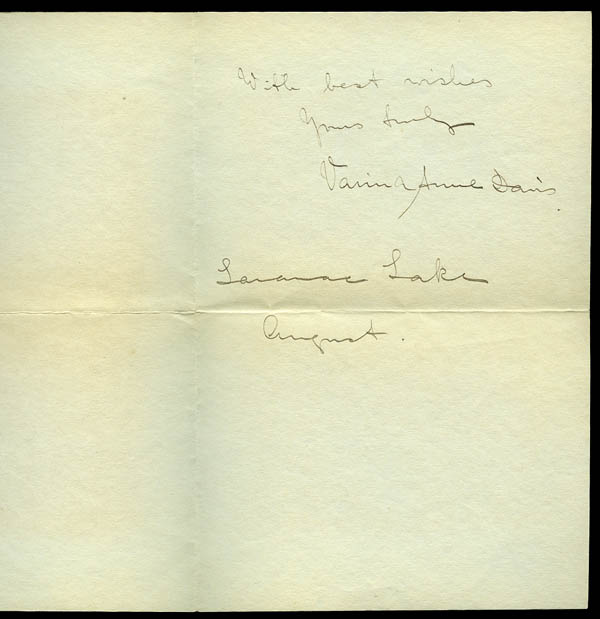 With best wishes
Yours truly
Varina Anne Davis.
Saranac Lake
August.